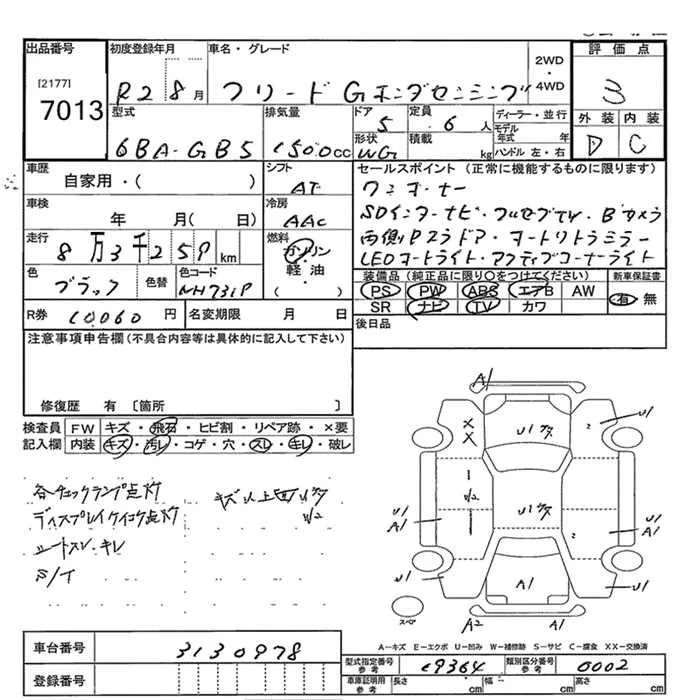 出品番号
[2177]
7013
初度登録年月
R2 8月
車名・グレード
フリード Gホンダセンシング
2WD
・
4WD
評価点
3
外装 内装
D C
型式
6BA-GB5
排気量
1500cc
ドア
5
定員
6人
形状
WG
積載
kg
ディーラー・並行
モデル年式 年
ハンドル 左・右
車歴
自家用・( )
シフト
AT
車検
年 月( 日)
冷房
AAC
走行
8万3千259km
燃料
ガソリン
軽油
・
( )
色
ブラック
色替
色コード
NH731P
R券 10060円
名変期限 月 日
セールスポイント(正常に機能するものに限ります)
ワンオーナー
SDインターナビ・フルセグTV・Bカメラ
両側Pスラドア・オートリトラミラー
LEDオートライト・アクティブコーナーライト
装備品(純正品に限り○をつけてください)
新車保証書
PS PW ABS エアB AW
SR ナビ TV カワ
有 無
後日品
注意事項申告欄(不具合内容等は具体的に記入して下さい)
修復歴 有〔箇所 〕
検査員記入欄
FW キズ・飛石・ヒビ割・リペア跡・×要
内装 キズ・汚レ・コゲ・穴・スレ・キレ・破レ
各チェックランプ点灯
ディスプレイケイコク点灯
シートスレ・キレ
キズ
A1
U1
X
X
U1
U1
U1
A1
U1
A1
U1
A1
U1
A2
A1
スペア
A-キズ E-エクボ U-凹み W-補修跡 S-サビ C-腐食 XX-交換済
車台番号 3130978
登録番号
型式指定番号 参考 19364
類別区分番号 参考 0002
車庫証明用 参考 長さ cm 幅 cm 高さ cm